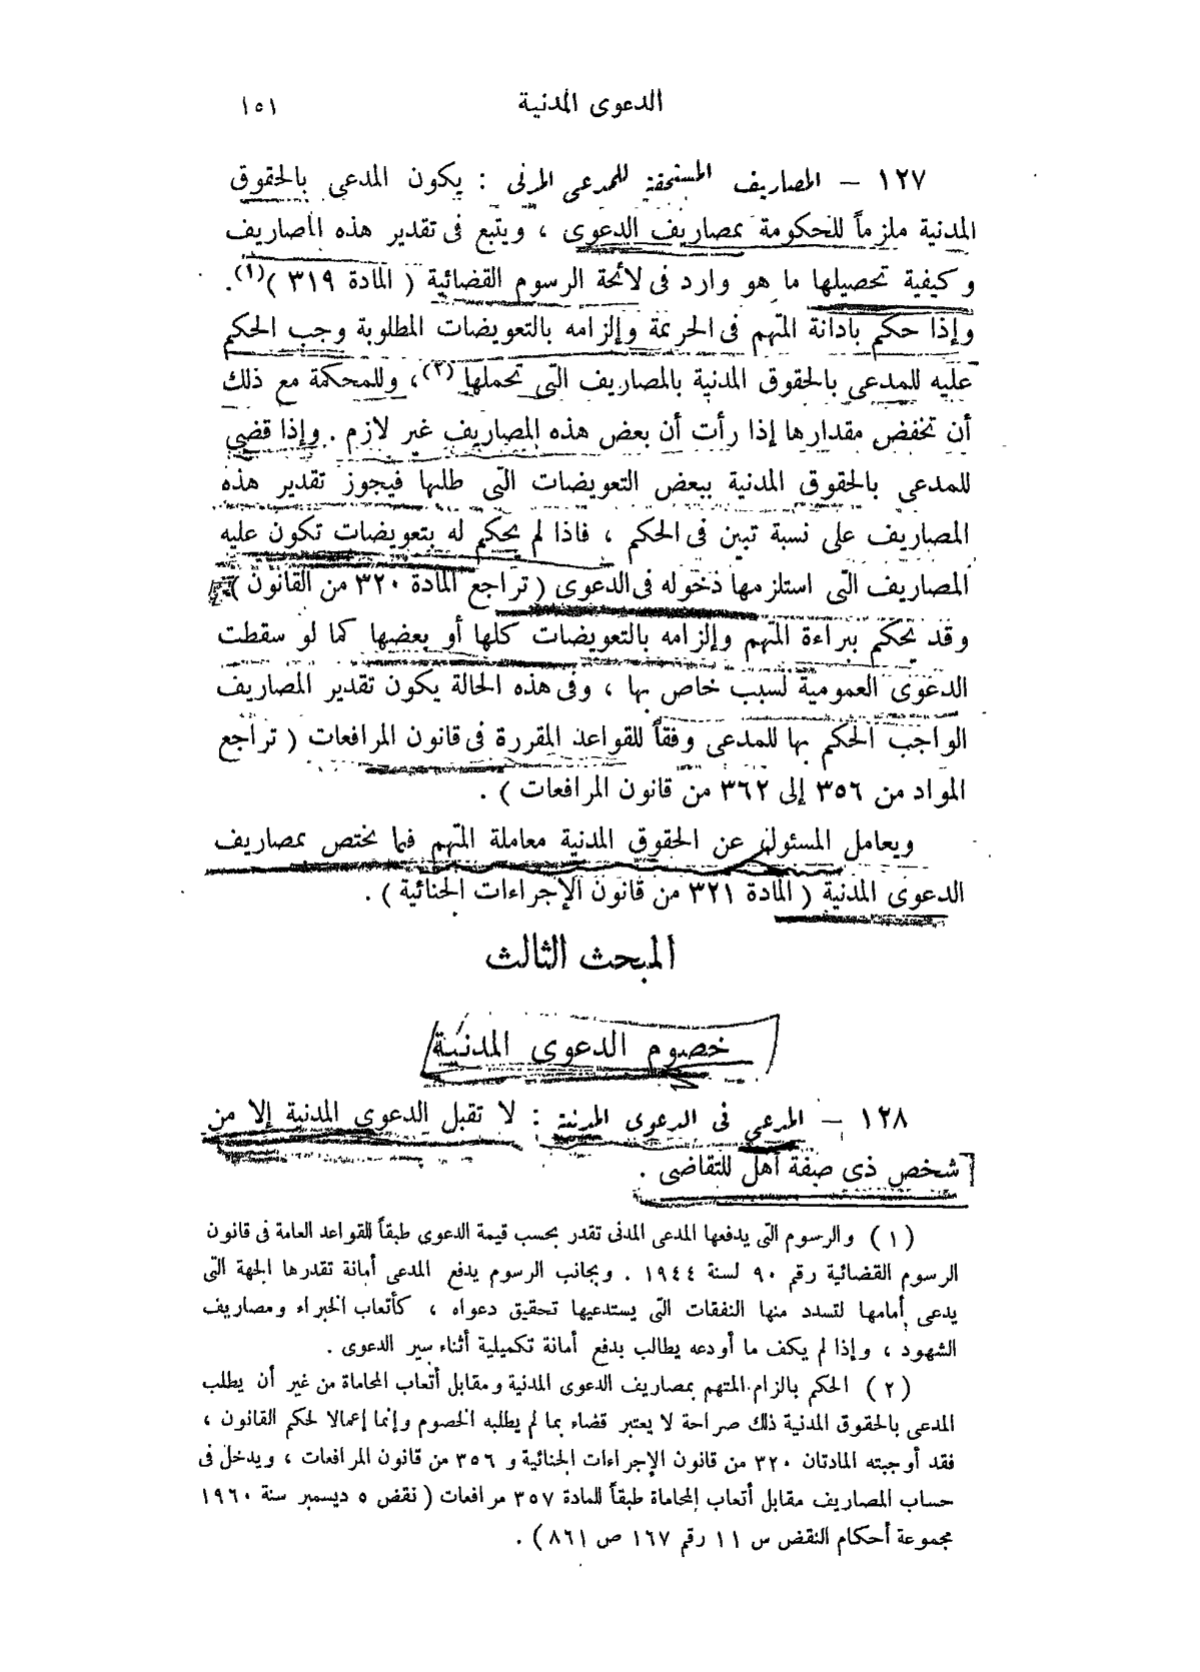 الدعوى المدنية ١٥١
١٢٧ – المصاريف المستحقة للمدعى المدنى : يكون المدعى بالحقوق
المدنية ملزماً للحكومة بمصاريف الدعوى ، ويتبع فى تقدير هذه المصاريف
وكيفية تحصيلها ما هو وارد فى لائحة الرسوم القضائية ( المادة ٣١٩ )(١).
وإذا حكم بادانة المتهم فى الجريمة وإلزامه بالتعويضات المطلوبة وجب الحكم
عليه للمدعى بالحقوق المدنية بالمصاريف التى تحملها (٢)، وللمحكمة مع ذلك
أن تخفض مقدارها إذا رأت أن بعض هذه المصاريف غير لازم . وإذا قضى
للمدعى بالحقوق المدنية ببعض التعويضات التى طلبها فيجوز تقدير هذه
المصاريف على نسبة تبين فى الحكم ، فاذا لم يحكم له بتعويضات تكون عليه
المصاريف التى استلزمها دخوله فى الدعوى ( تراجع المادة ٣٢٠ من القانون ).
وقد يحكم ببراءة المتهم وإلزامه بالتعويضات كلها أو بعضها كما لو سقطت
الدعوى العمومية لسبب خاص بها ، وفى هذه الحالة يكون تقدير المصاريف
الواجب الحكم بها للمدعى وفقاً للقواعد المقررة فى قانون المرافعات ( تراجع
المواد من ٣٥٦ إلى ٣٦٢ من قانون المرافعات ) .
ويعامل المسئول عن الحقوق المدنية معاملة المتهم فيما يختص بمصاريف
الدعوى المدنية ( المادة ٣٢١ من قانون الإجراءات الجنائية ) .
المبحث الثالث
خصوم الدعوى المدنية
١٢٨ – المدعى فى الدعوى المدنية : لا تقبل الدعوى المدنية إلا من
شخص ذى صفة أهل للتقاضى .
( ١ ) والرسوم التى يدفعها المدعى المدنى تقدر بحسب قيمة الدعوى طبقاً للقواعد العامة فى قانون
الرسوم القضائية رقم ٩٠ لسنة ١٩٤٤ . وبجانب الرسوم يدفع المدعى أمانة تقدرها الجهة التى
يدعى أمامها لتسدد منها النفقات التى يستدعيها تحقيق دعواه ، كأتعاب الخبراء ومصاريف
الشهود ، وإذا لم يكف ما أودعه يطالب بدفع أمانة تكميلية أثناء سير الدعوى .
( ٢ ) الحكم بالزام المتهم بمصاريف الدعوى المدنية ومقابل أتعاب المحاماة من غير أن يطلب
المدعى بالحقوق المدنية ذلك صراحة لا يعتبر قضاء بما لم يطلبه الخصوم وإنما إعمالا لحكم القانون ،
فقد أوجبته المادتان ٣٢٠ من قانون الإجراءات الجنائية و ٣٥٦ من قانون المرافعات ، ويدخل فى
حساب المصاريف مقابل أتعاب المحاماة طبقاً للمادة ٣٥٧ مرافعات ( نقض ٥ ديسمبر سنة ١٩٦٠
مجموعة أحكام النقض س ١١ رقم ١٦٧ ص ٨٦١ ) .